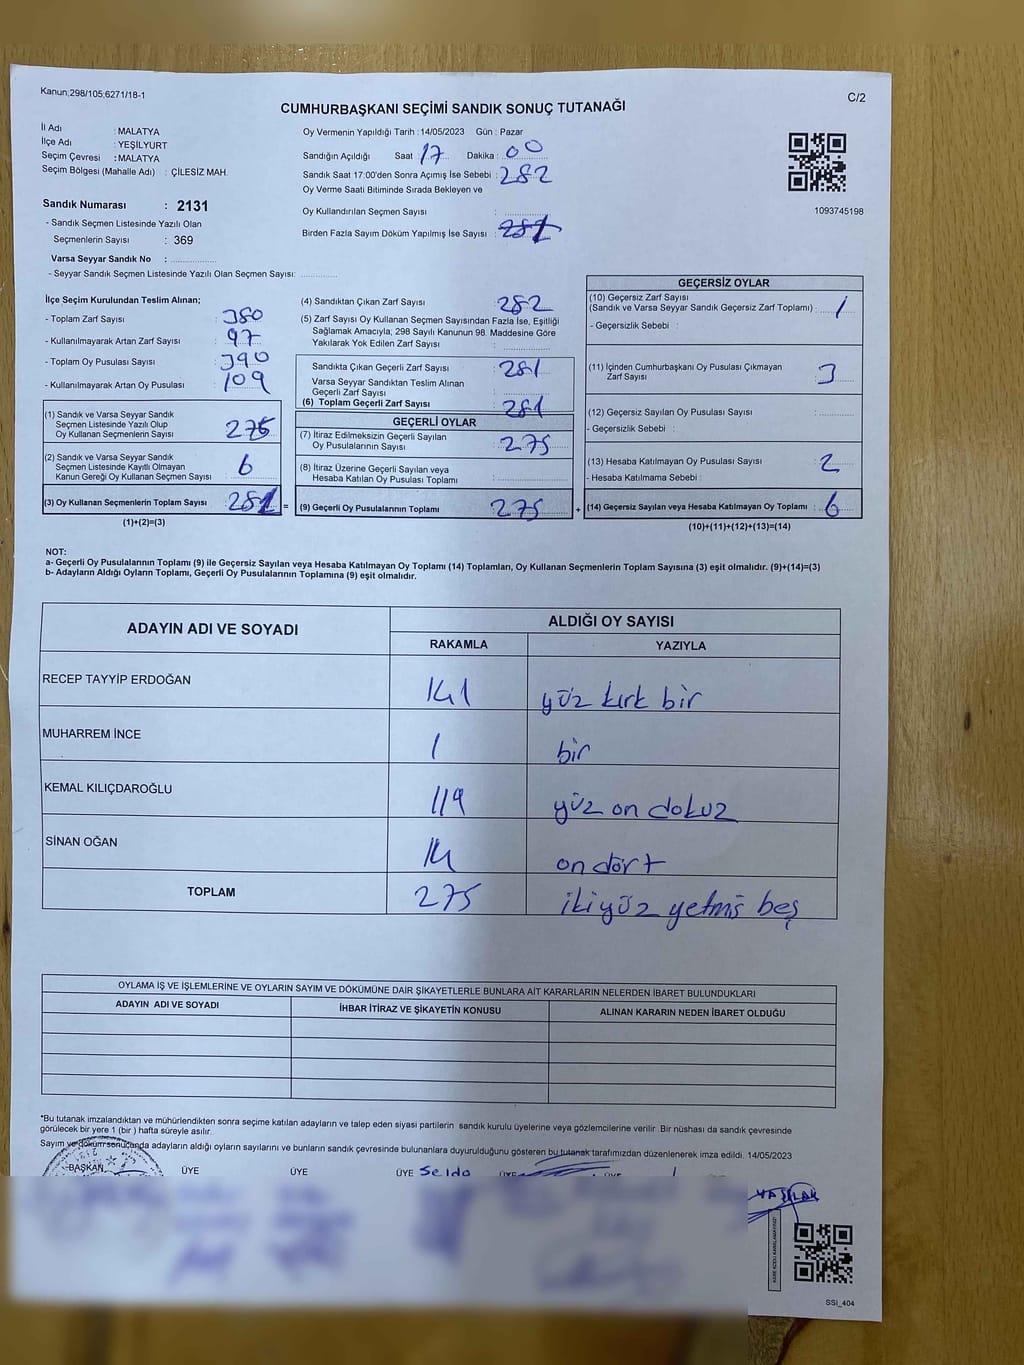 Kanun;298/105;6271/18-1
C/2
CUMHURBAŞKANI SEÇİMİ SANDIK SONUÇ TUTANAĞI
İl Adı : MALATYA
İlçe Adı : YEŞİLYURT
Seçim Çevresi : MALATYA
Seçim Bölgesi (Mahalle Adı) : ÇİLESİZ MAH.
Sandık Numarası : 2131
- Sandık Seçmen Listesinde Yazılı Olan
Seçmenlerin Sayısı : 369
Varsa Seyyar Sandık No :
- Seyyar Sandık Seçmen Listesinde Yazılı Olan Seçmen Sayısı:
Oy Vermenin Yapıldığı Tarih : 14/05/2023 Gün : Pazar
Sandığın Açıldığı Saat : 17 Dakika : 00
Sandık Saat 17:00'den Sonra Açımış İse Sebebi : 282
Oy Verme Saati Bitiminde Sırada Bekleyen ve
Oy Kullandırılan Seçmen Sayısı :
Birden Fazla Sayım Döküm Yapılmış İse Sayısı :
1093745198
İlçe Seçim Kurulundan Teslim Alınan;
- Toplam Zarf Sayısı : 380
- Kullanılmayarak Artan Zarf Sayısı : 97
- Toplam Oy Pusulası Sayısı : 390
- Kullanılmayarak Artan Oy Pusulası : 109
(1) Sandık ve Varsa Seyyar Sandık
Seçmen Listesinde Yazılı Olup
Oy Kullanan Seçmenlerin Sayısı : 275
(2) Sandık ve Varsa Seyyar Sandık
Seçmen Listesinde Kayıtlı Olmayan
Kanun Gereği Oy Kullanan Seçmen Sayısı : 6
(3) Oy Kullanan Seçmenlerin Toplam Sayısı : 281 =
(1)+(2)=(3)
(4) Sandıktan Çıkan Zarf Sayısı : 282
(5) Zarf Sayısı Oy Kullanan Seçmen Sayısından Fazla İse, Eşitliği
Sağlamak Amacıyla; 298 Sayılı Kanunun 98. Maddesine Göre
Yakılarak Yok Edilen Zarf Sayısı :
Sandıkta Çıkan Geçerli Zarf Sayısı : 281
Varsa Seyyar Sandıktan Teslim Alınan
Geçerli Zarf Sayısı :
(6) Toplam Geçerli Zarf Sayısı : 281
GEÇERLİ OYLAR
(7) İtiraz Edilmeksizin Geçerli Sayılan
Oy Pusulalarının Sayısı : 275
(8) İtiraz Üzerine Geçerli Sayılan veya
Hesaba Katılan Oy Pusulası Toplamı :
(9) Geçerli Oy Pusulalarının Toplamı : 275 +
GEÇERSİZ OYLAR
(10) Geçersiz Zarf Sayısı
(Sandık ve Varsa Seyyar Sandık Geçersiz Zarf Toplamı) : 1
- Geçersizlik Sebebi :
(11) İçinden Cumhurbaşkanı Oy Pusulası Çıkmayan
Zarf Sayısı : 3
(12) Geçersiz Sayılan Oy Pusulası Sayısı :
- Geçersizlik Sebebi :
(13) Hesaba Katılmayan Oy Pusulası Sayısı : 2
- Hesaba Katılmama Sebebi :
(14) Geçersiz Sayılan veya Hesaba Katılmayan Oy Toplamı : 6
(10)+(11)+(12)+(13)=(14)
NOT:
a- Geçerli Oy Pusulalarının Toplamı (9) ile Geçersiz Sayılan veya Hesaba Katılmayan Oy Toplamı (14) Toplamları, Oy Kullanan Seçmenlerin Toplam Sayısına (3) eşit olmalıdır. (9)+(14)=(3)
b- Adayların Aldığı Oyların Toplamı, Geçerli Oy Pusulalarının Toplamına (9) eşit olmalıdır.
ADAYIN ADI VE SOYADI
ALDIĞI OY SAYISI
RAKAMLA YAZIYLA
RECEP TAYYİP ERDOĞAN 141 yüz kırk bir
MUHARREM İNCE 1 bir
KEMAL KILIÇDAROĞLU 119 yüz on dokuz
SİNAN OĞAN 14 on dört
TOPLAM 275 ikiyüz yetmiş beş
OYLAMA İŞ VE İŞLEMLERİNE VE OYLARIN SAYIM VE DÖKÜMÜNE DAİR ŞİKAYETLERLE BUNLARA AİT KARARLARIN NELERDEN İBARET BULUNDUKLARI
ADAYIN ADI VE SOYADI İHBAR İTİRAZ VE ŞİKAYETİN KONUSU ALINAN KARARIN NEDEN İBARET OLDUĞU
*Bu tutanak imzalandıktan ve mühürlendikten sonra seçime katılan adayların ve talep eden siyasi partilerin sandık kurulu üyelerine veya gözlemcilerine verilir. Bir nüshası da sandık çevresinde
görülecek bir yere 1 (bir ) hafta süreyle asılır.
Sayım ve döküm sonucunda adayların aldığı oyların sayılarını ve bunların sandık çevresinde bulunanlara duyurulduğunu gösteren bu tutanak tarafımızdan düzenlenerek imza edildi. 14/05/2023
BAŞKAN ÜYE ÜYE ÜYE Selda ÜYE ÜYE
SSİ_404